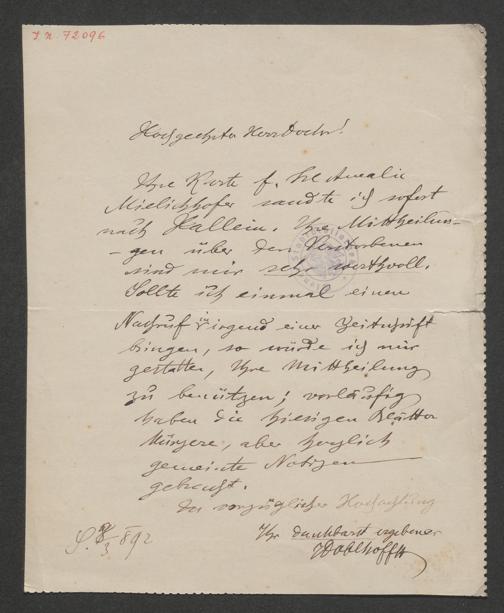 I.N. 72096
Hochgeehrter Herr Doctor!
Ihre Karte f. Frl Amalie
Mielichhofer sandte ich sofort
nach Hallein. Ihre Mittheilun-
-gen über den Verstorbenen
sind mir sehr werthvoll.
Sollte ich einmal einen
Nachruf in irgend einer Zeitschrift
bringen, so würde ich mir
gestatten, Ihre Mittheilung
zu benützen; vorläufig
haben die hiesigen Blätter
kürzere, aber herzlich
gemeinte Notizen
gebracht.
In vorzüglicher Hochachtung
Ihr dankbarst ergebener
S. 3 892